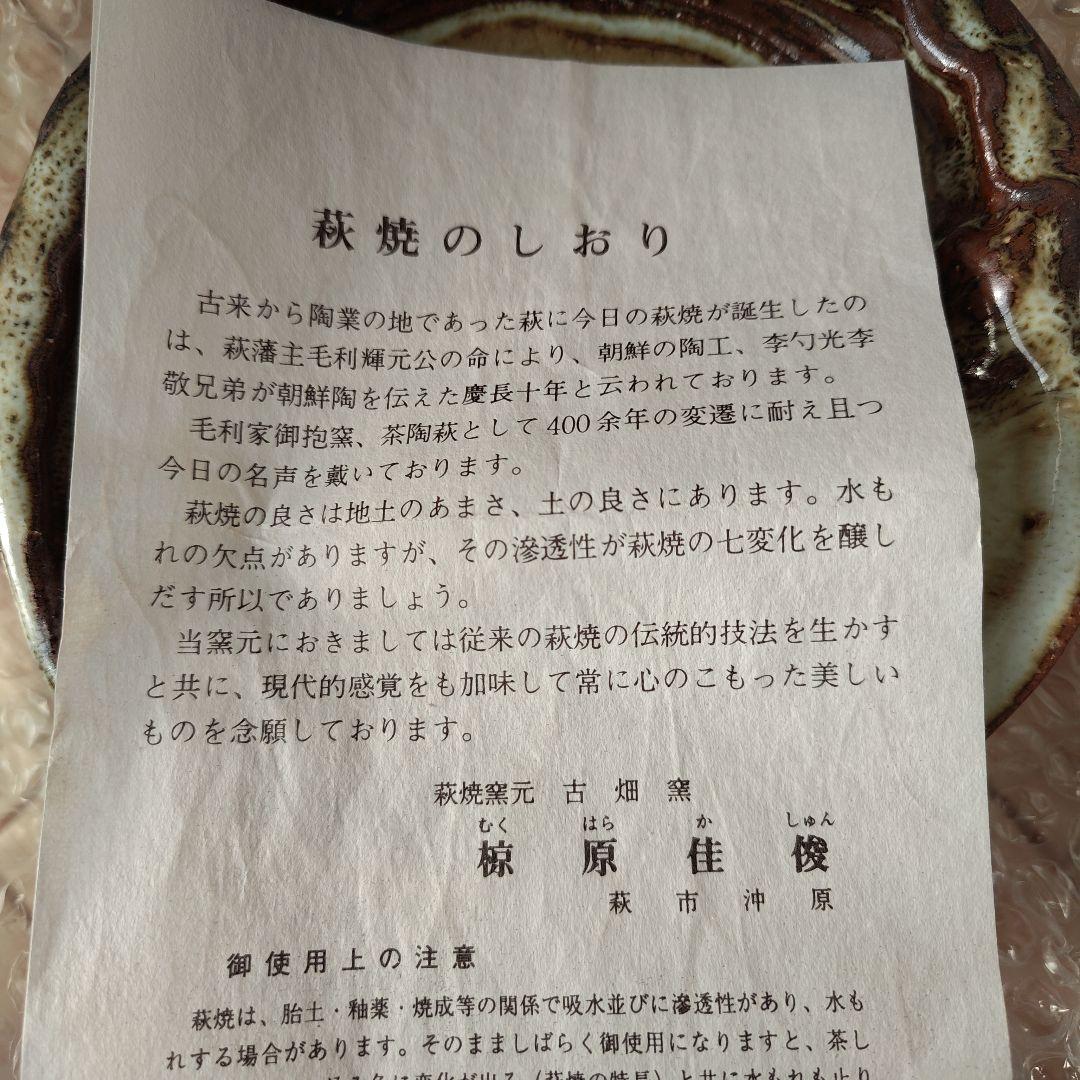 萩焼のしおり
古来から陶業の地であった萩に今日の萩焼が誕生したの
は、萩藩主毛利輝元公の命により、朝鮮の陶工、李勺光李
敬兄弟が朝鮮陶を伝えた慶長十年と云われております。
毛利家御抱窯、茶陶萩として400余年の変遷に耐え且つ
今日の名声を戴いております。
萩焼の良さは地土のあまさ、土の良さにあります。水も
れの欠点がありますが、その滲透性が萩焼の七変化を醸し
だす所以でありましょう。
当窯元におきましては従来の萩焼の伝統的技法を生かす
と共に、現代的感覚をも加味して常に心のこもった美しい
ものを念願しております。
萩焼窯元 古畑窯
むく はら か しゅん
椋原佳俊
萩市沖原
御使用上の注意
萩焼は、胎土・釉薬・焼成等の関係で吸水並びに滲透性があり、水も
れする場合があります。そのまましばらく御使用になりますと、茶し
に変化が出る(萩焼の特長)と共に水もれも止り